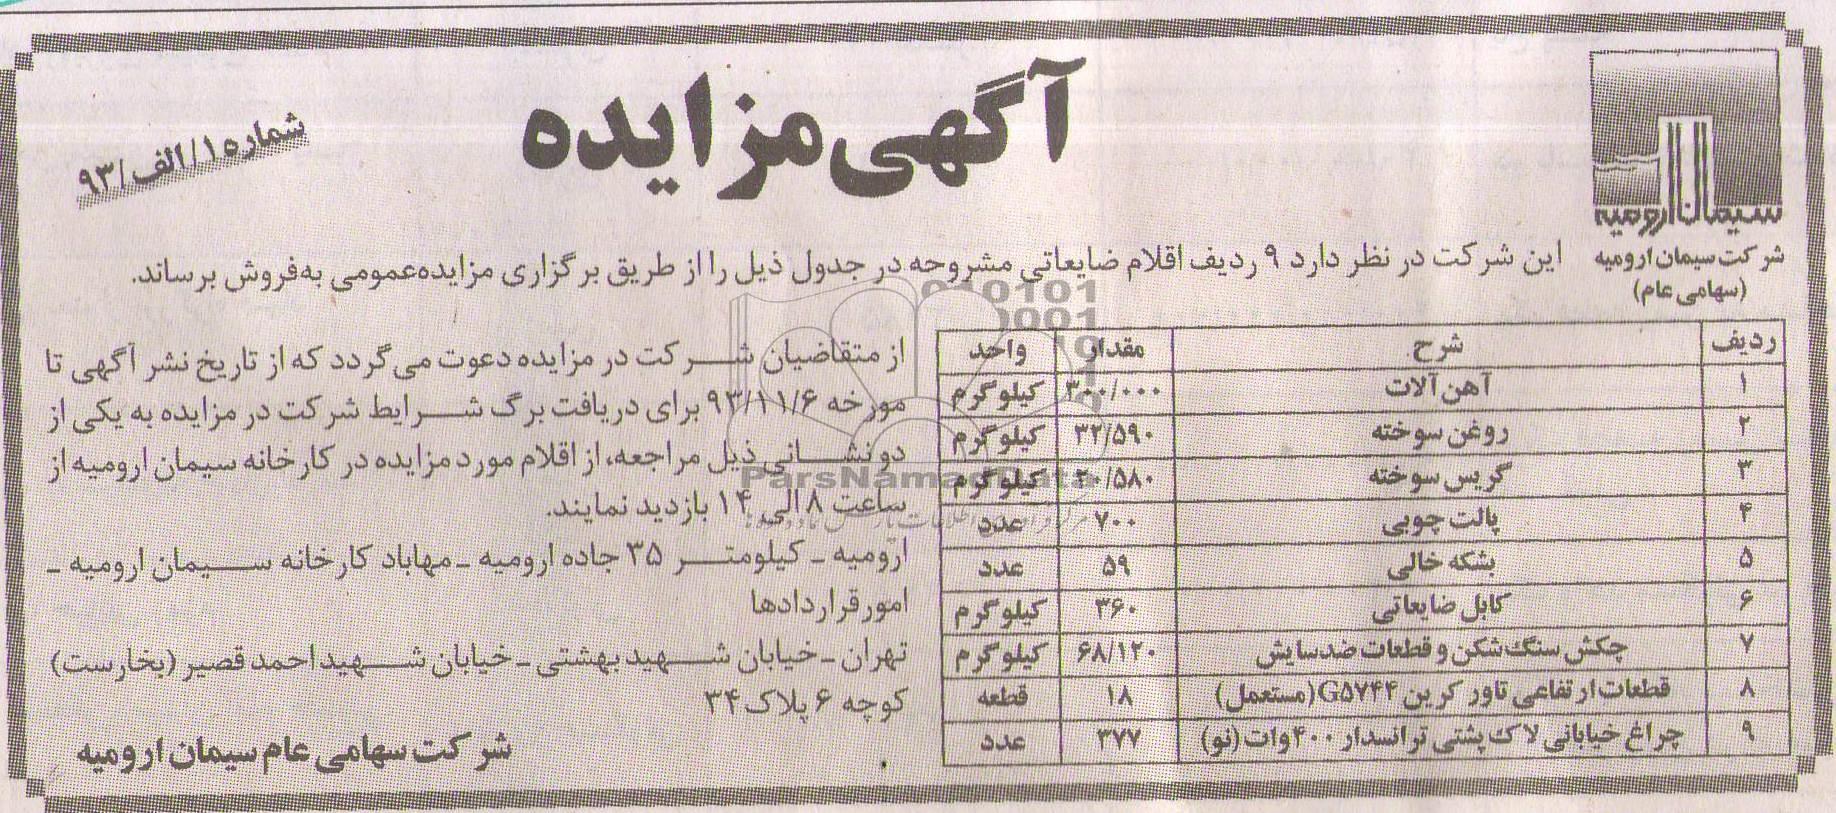 آگهی مزایده
شماره ۱/الف/۹۳
سیمان ارومیه
شرکت سیمان ارومیه
(سهامی عام)
این شرکت در نظر دارد ۹ ردیف اقلام ضایعاتی مشروحه در جدول ذیل را از طریق برگزاری مزایده عمومی به‌فروش برساند.
ردیف شرح مقدار واحد
۱ آهن آلات ۳۰۰/۰۰۰ کیلوگرم
۲ روغن سوخته ۳۲/۵۹۰ کیلوگرم
۳ گریس سوخته ۲۰/۵۸۰ کیلوگرم
۴ پالت چوبی ۷۰۰ عدد
۵ بشکه خالی ۵۹ عدد
۶ کابل ضایعاتی ۳۶۰ کیلوگرم
۷ چکش سنگ‌شکن و قطعات ضدسایش ۶۸/۱۲۰ کیلوگرم
۸ قطعات ارتفاعی تاور کرین G۵۷۴۴ (مستعمل) ۱۸ قطعه
۹ چراغ خیابانی لاک پشتی ترانسدار ۴۰۰ وات (نو) ۳۷۷ عدد
از متقاضیان شرکت در مزایده دعوت می‌گردد که از تاریخ نشر آگهی تا
مورخه ۹۳/۱۱/۶ برای دریافت برگ شرایط شرکت در مزایده به یکی از
دو نشانی ذیل مراجعه، از اقلام مورد مزایده در کارخانه سیمان ارومیه از
ساعت ۸ الی ۱۴ بازدید نمایند.
ارومیه ـ کیلومتر ۳۵ جاده ارومیه ـ مهاباد کارخانه سیمان ارومیه ـ
امور قراردادها
تهران ـ خیابان شهید بهشتی ـ خیابان شهید احمد قصیر (بخارست)
کوچه ۶ پلاک ۳۴
شرکت سهامی عام سیمان ارومیه
ParsNamadData